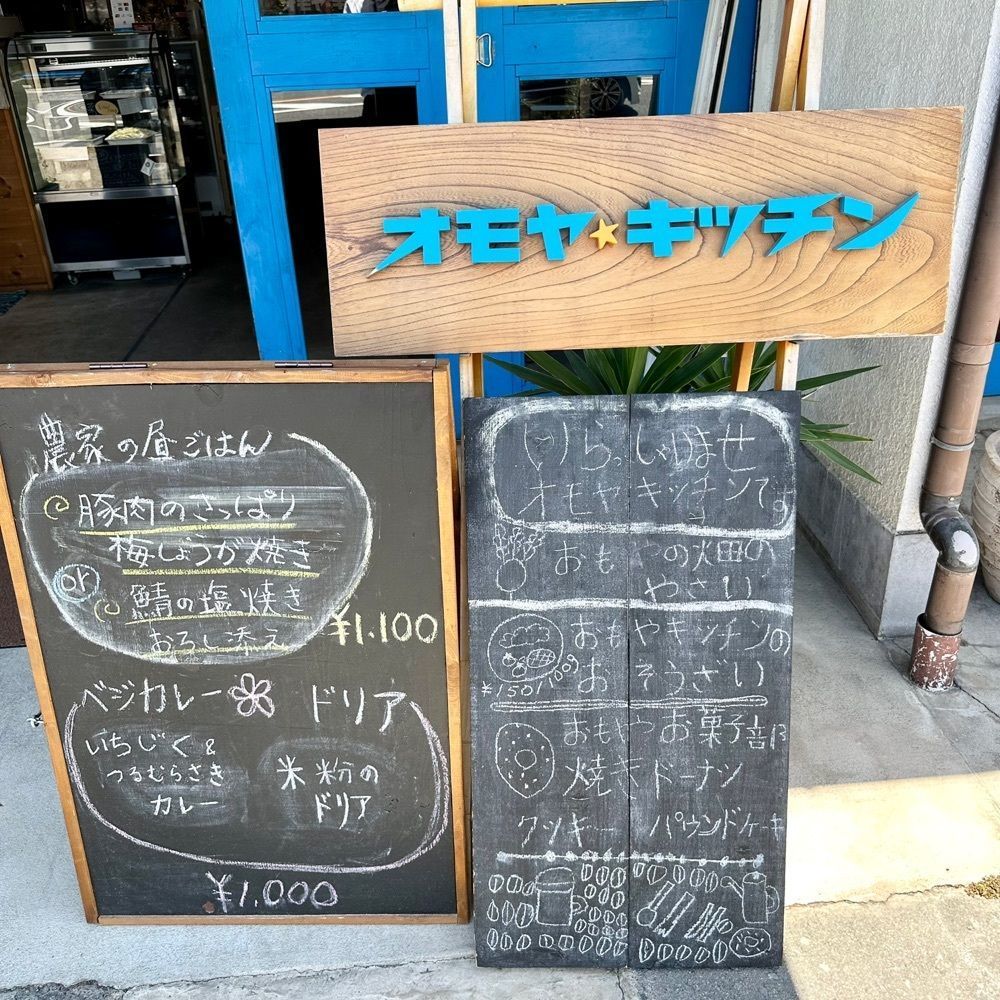 オモヤ★キッチン
農家の昼ごはん
豚肉のさっぱり
梅しょうが焼き
or
鯖の塩焼き
おろし添え
¥1.100
ベジカレー
ドリア
いちじく&
つるむらさき
カレー
米粉の
ドリア
¥1.000
いらっしゃいませ
オモヤキッチンです。
おもやの畑の
やさい
おもやキッチンの
おそうざい
¥150/
おもやお菓子部
焼きドーナツ
クッキー パウンドケーキ